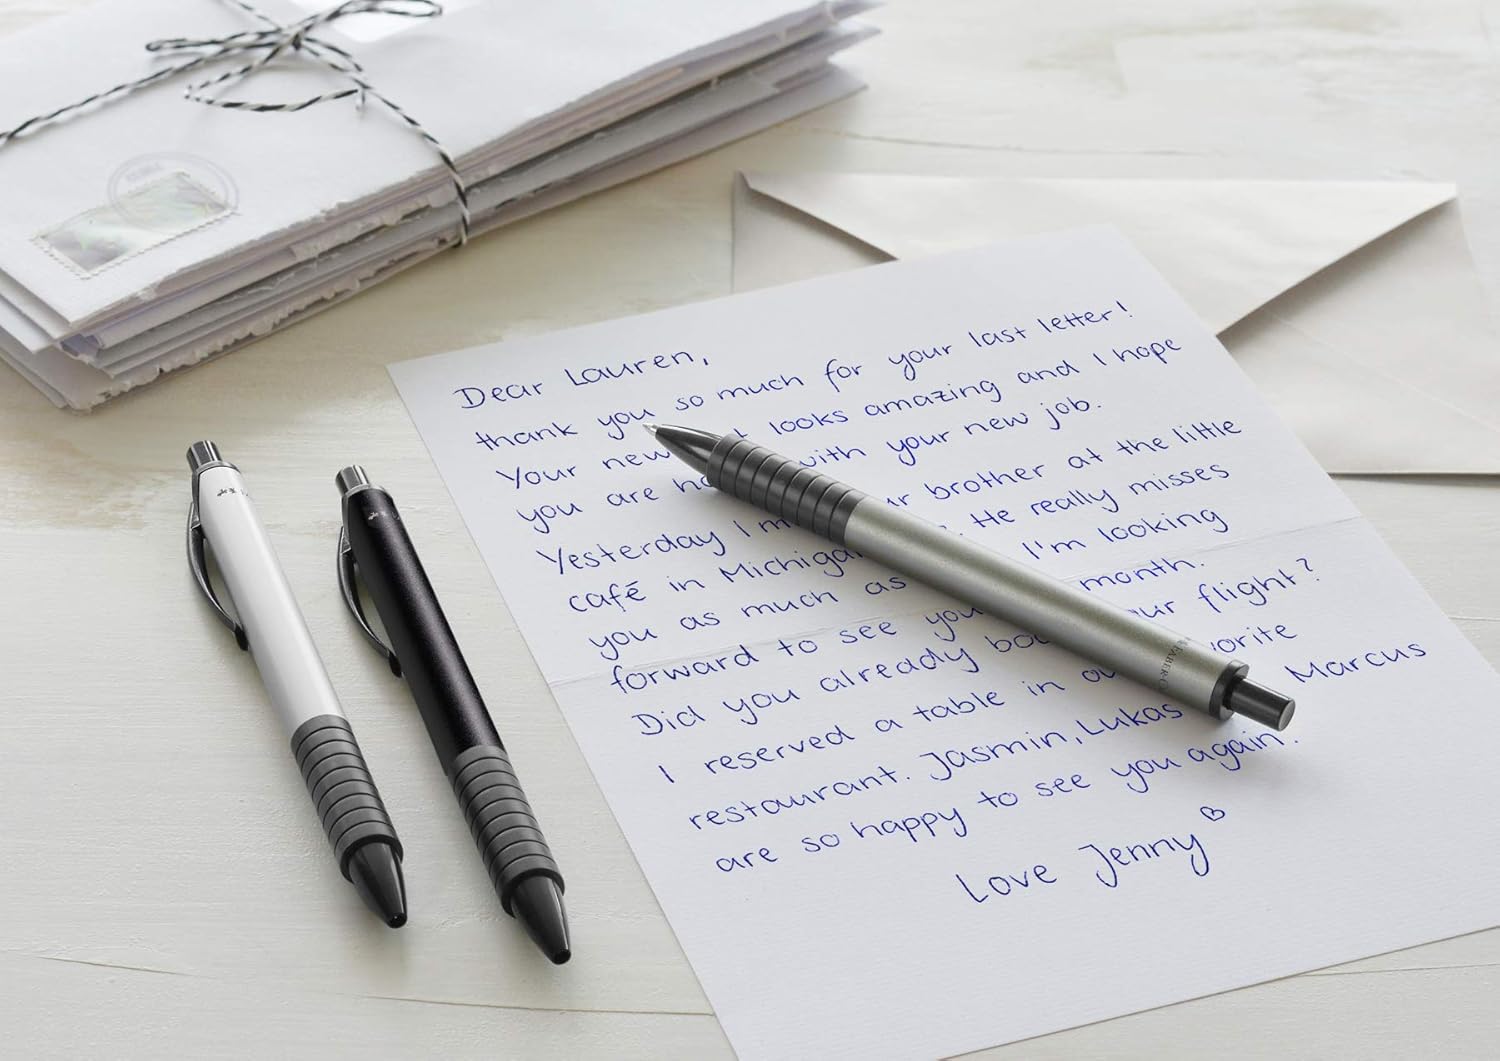 Dear Lauren,
thank you so much for your last letter!
Your new looks amazing and I hope
you are with your new job.
Yesterday I brother at the little
café in Michigan He really misses
you as much as I'm looking
forward to see you month.
Did you already your flight?
I reserved a table in
restaurant. Jasmin, Lukas Marcus
are so happy to see you again.
Love Jenny